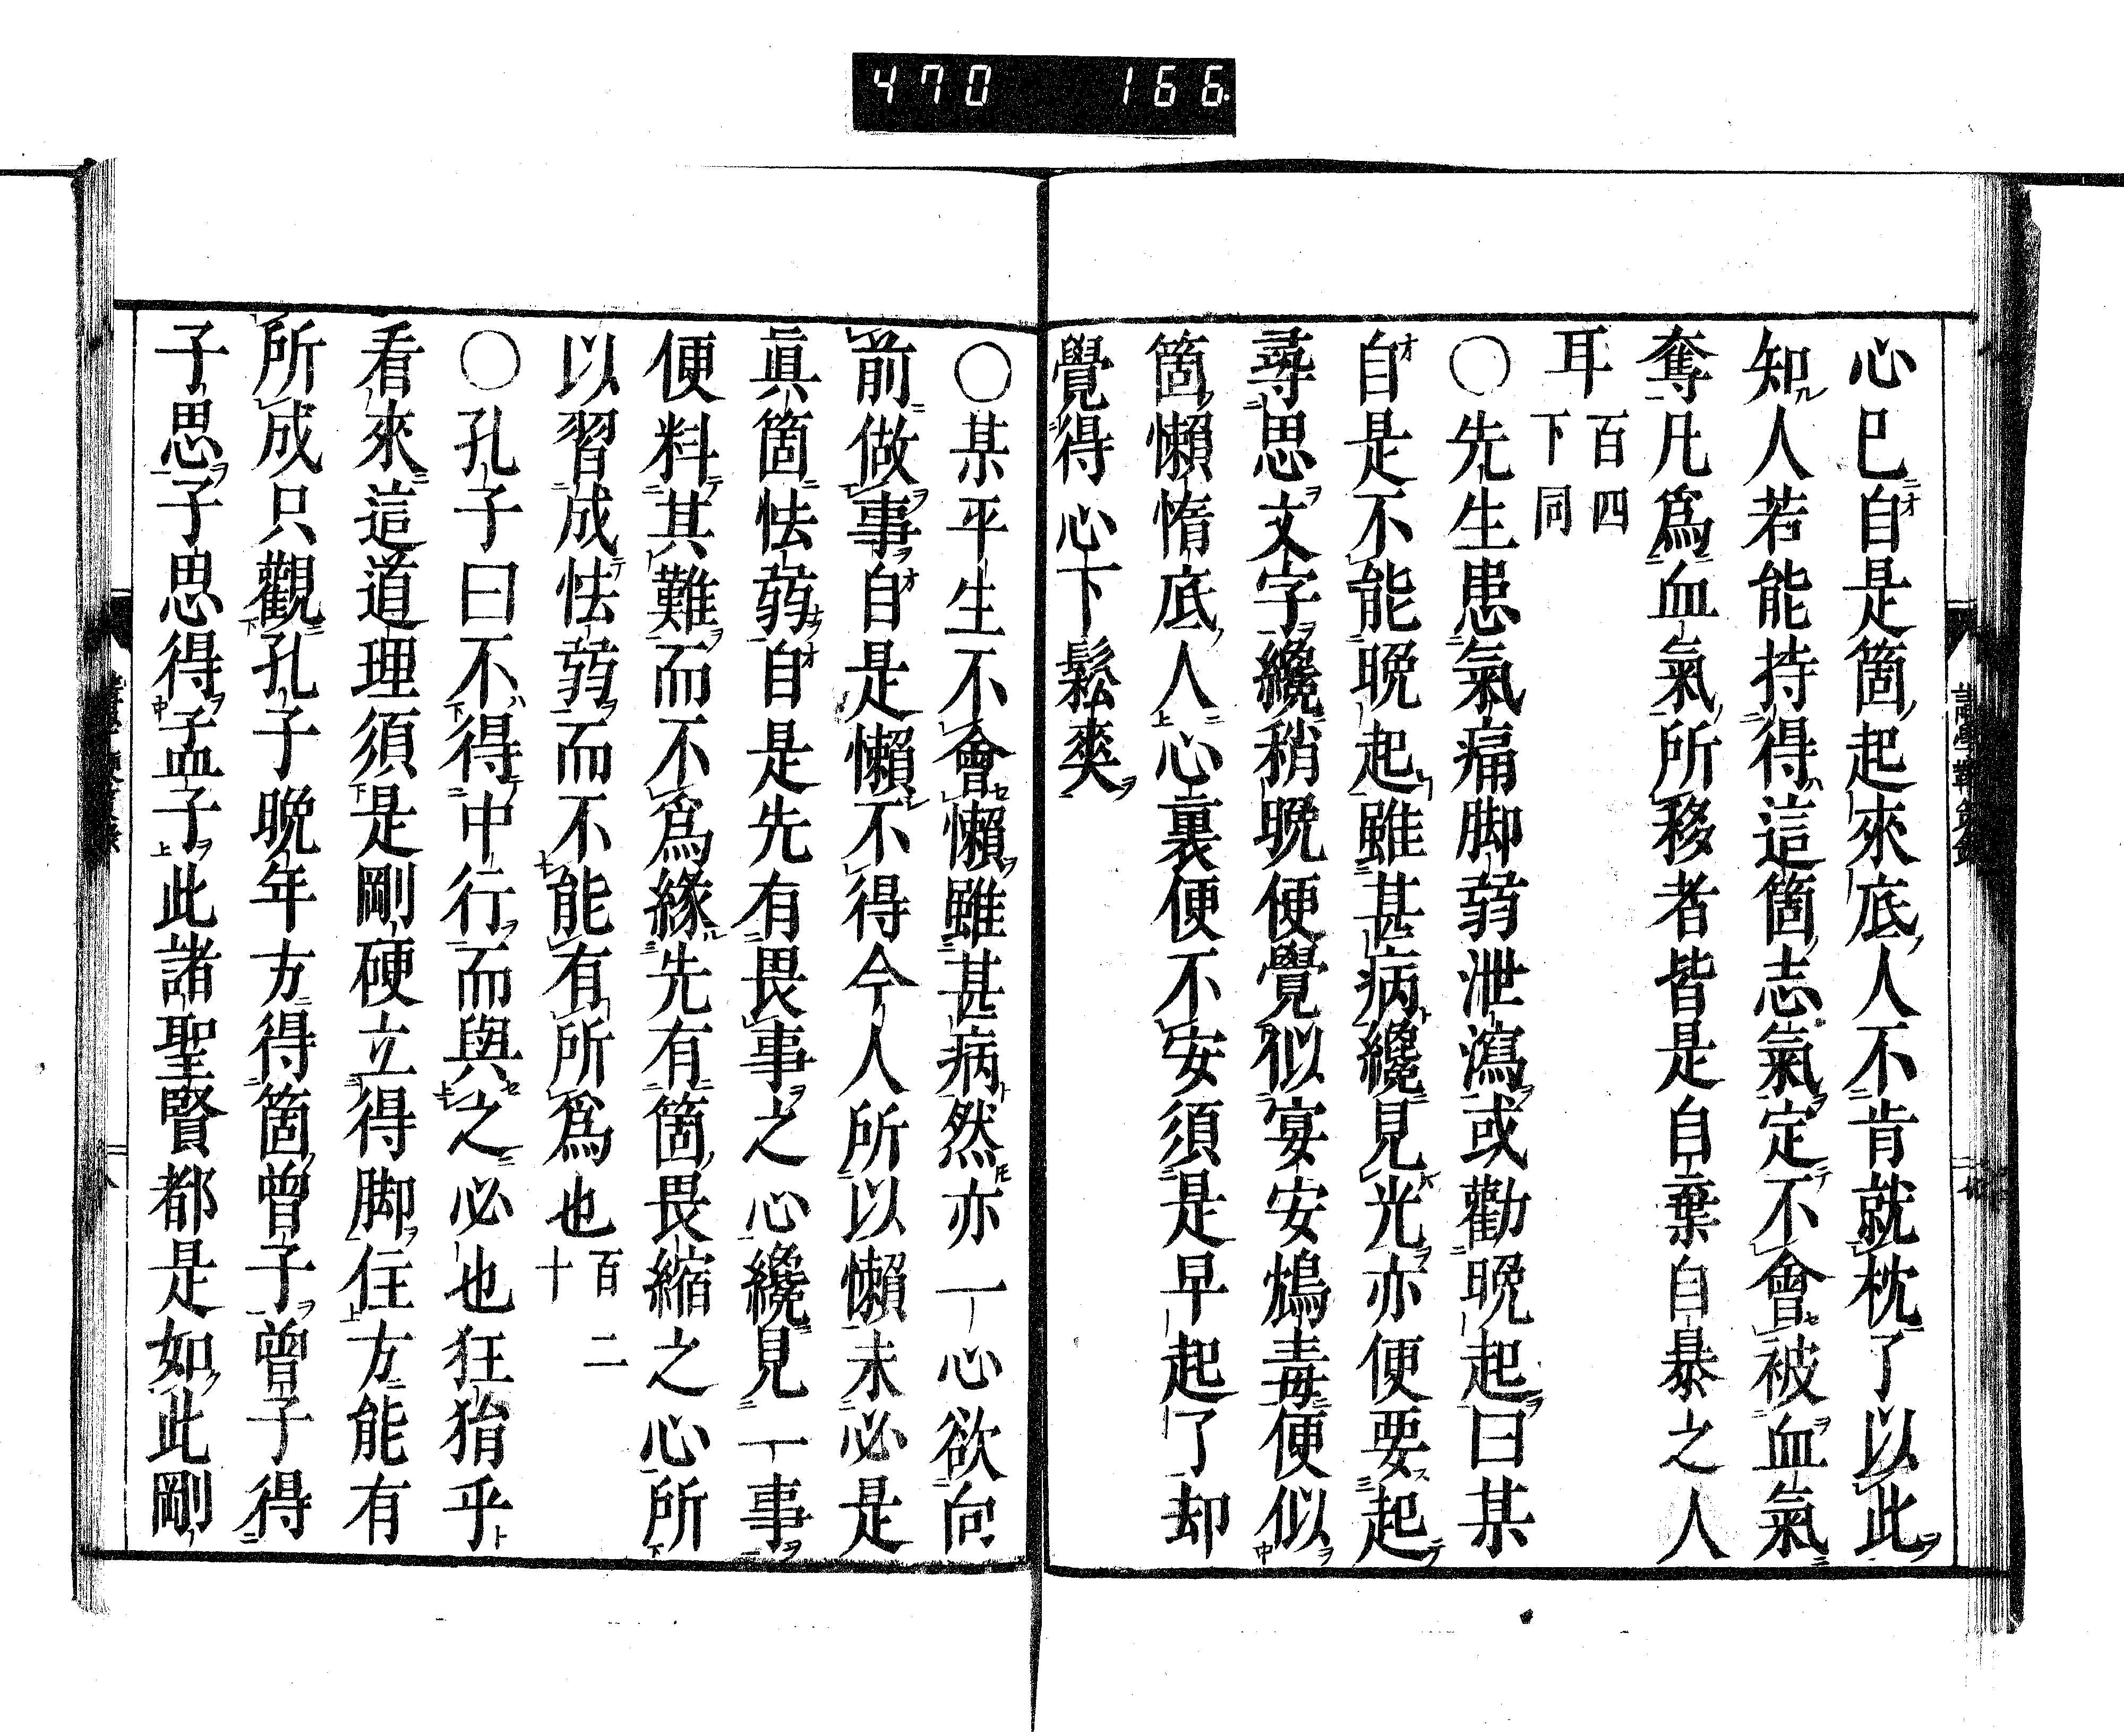 470 166
心巳自是箇起來底人不肯就枕了以此
知人若能持得這箇志氣定不會被血氣
奪凡爲血氣所移者皆是自棄自暴之人
耳百四下同
○先生患氣痛脚弱泄瀉或勸晩起曰某
自是不能晩起雖甚病纔見光亦便要起
尋思文字纔稍晩便覺似宴安鴆毒便似
箇懶惰底人心裏便不安須是早起了却
覺得心下鬆爽
○某平生不會懶雖甚病然亦一心欲向
前做事自是懶不得今人所以懶未必是
眞箇怯弱自是先有畏事之心纔見一事
便料其難而不爲緣先有箇畏縮之心所
以習成怯弱而不能有所爲也百二十
○孔子曰不得中行而與之必也狂狷乎
看來這道理須是剛硬立得脚住方能有
所成只觀孔子晩年方得箇曾子曾子得
子思子思得孟子此諸聖賢都是如此剛